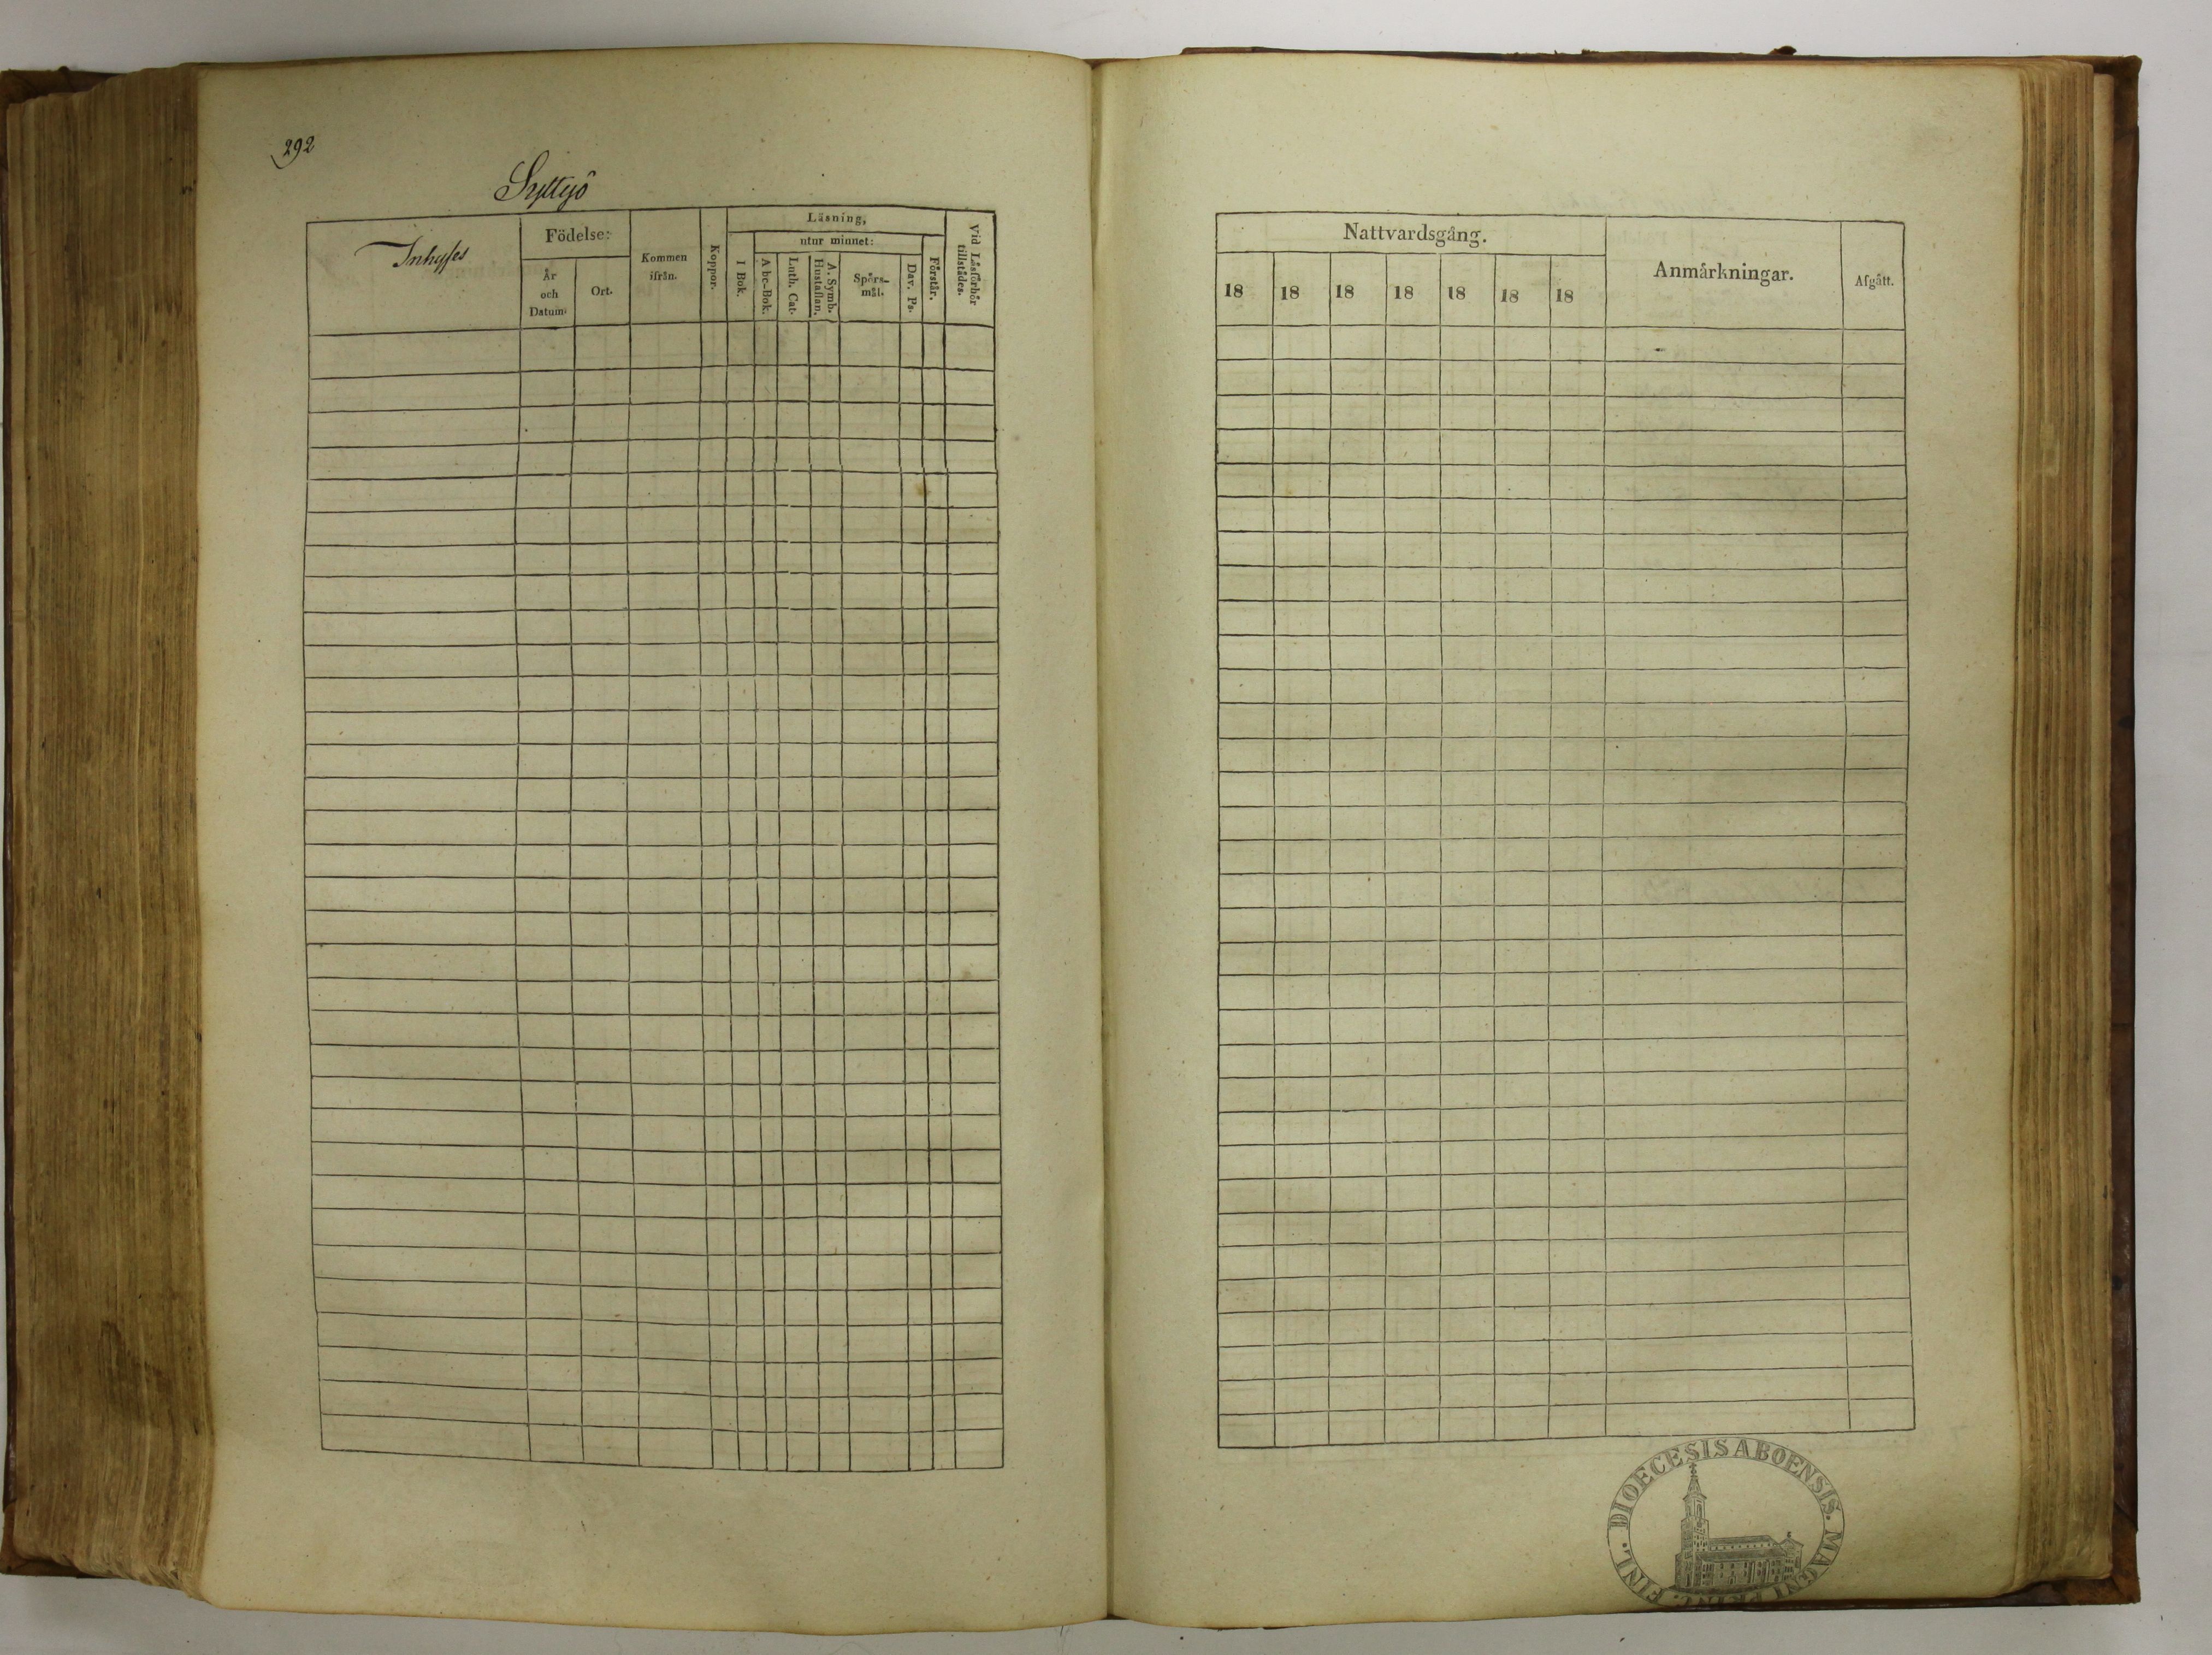 292
Syttyö
Inhyses
Födelse:
År
och
Datum:
Ort.
Kommen
ifrån.
Koppor.
Läsning,
utur minnet:
I Bok.
Abc-Bok.
Luth. Cat.
A. Symb.
Hustaflan.
Spörs-
mål.
Dav. Ps.
Förstår.
Vid Läsförhör
tillstädes.
Nattvardsgång.
18 18 18 18 18 18 18
Anmärkningar.
Afgått.
DIOECESIS ABOENSIS. MAGNI PRINC. FINL.